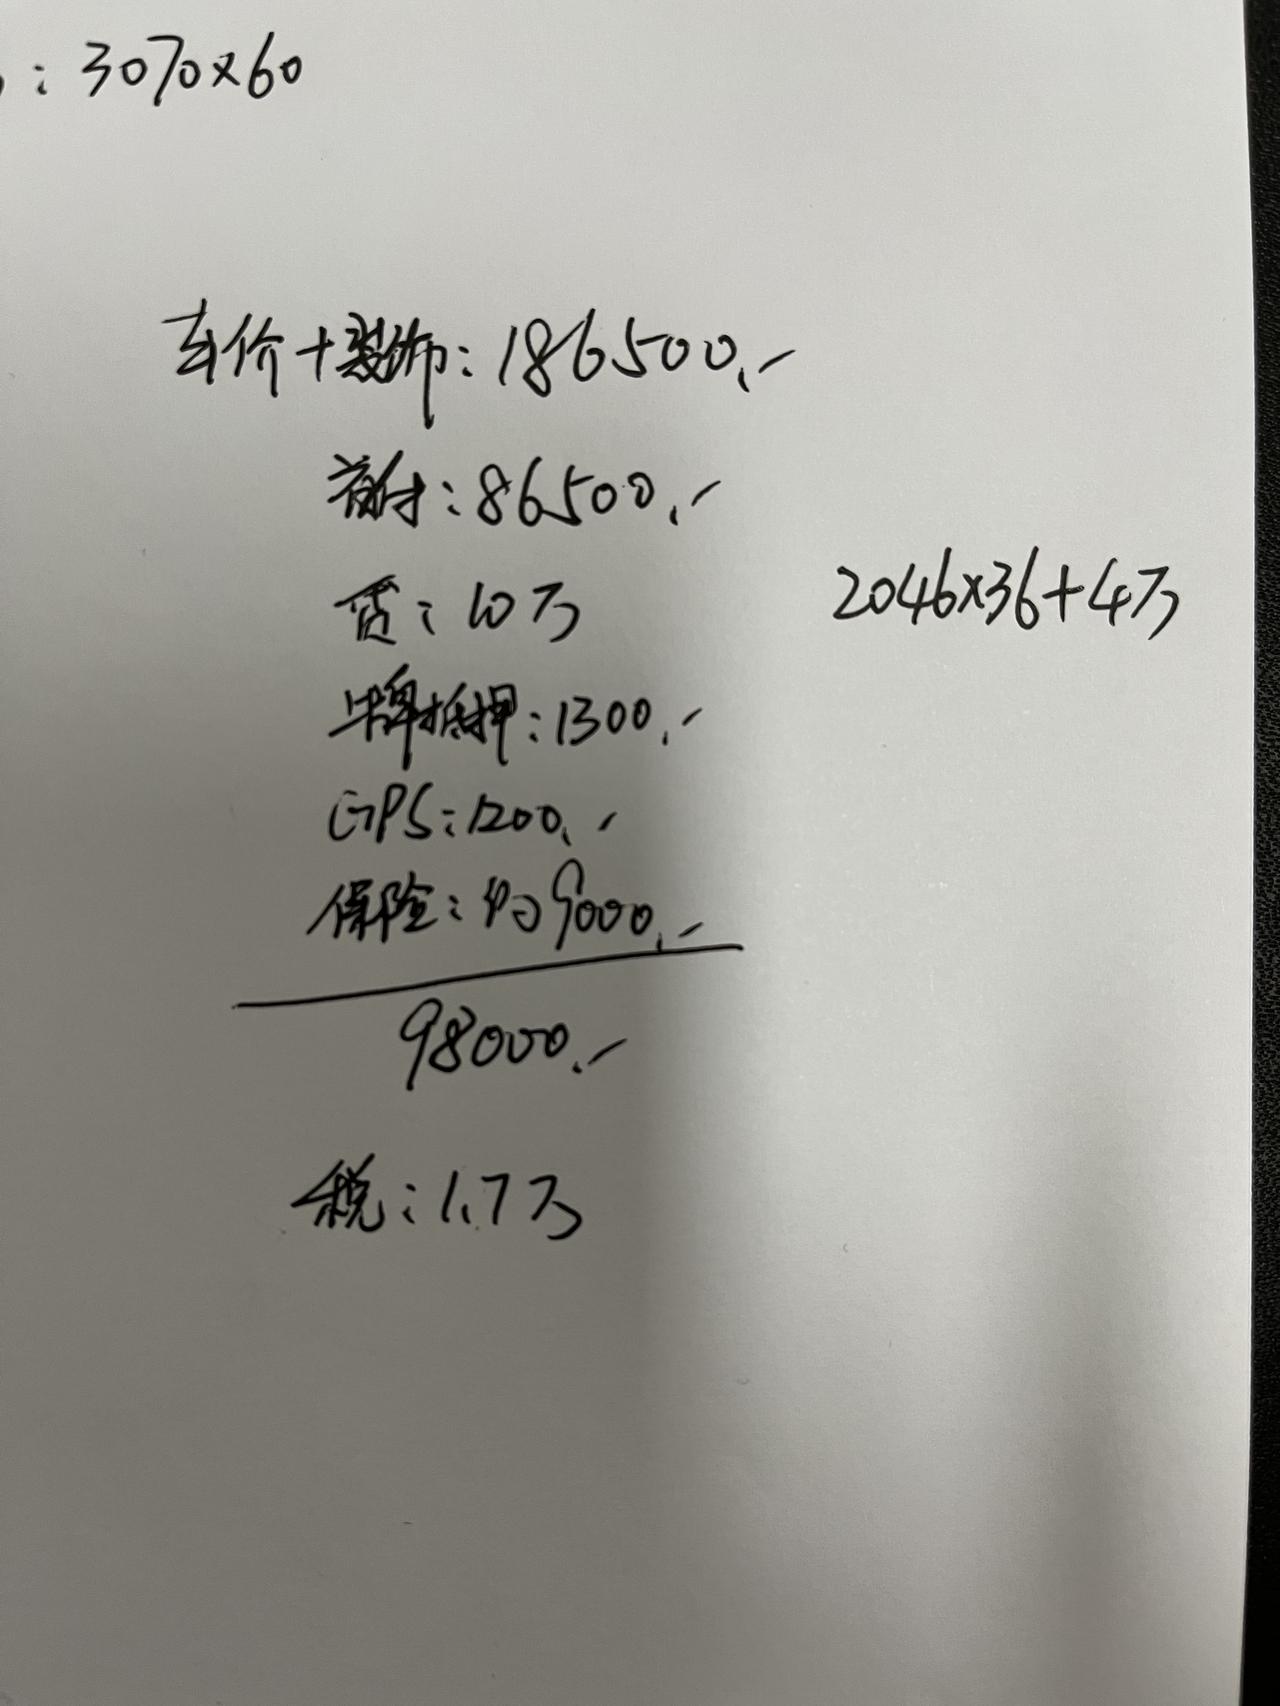 : 3070×60
车价+装饰: 186500.-
首付: 86500.-
贷: 10万
2046×36+4万
上牌抵押: 1300.-
GPS: 1200.-
保险: 约9000.-
98000.-
税: 1.7万